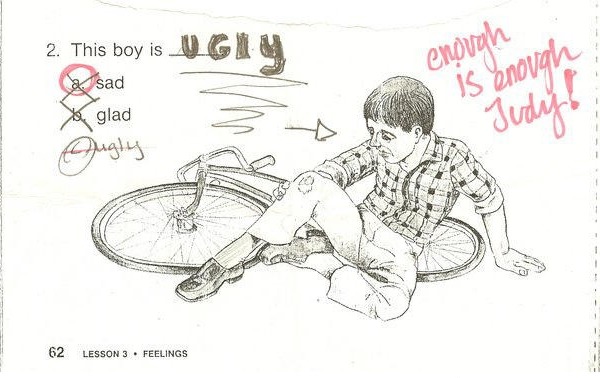 2. This boy is UGLY
a. sad
b. glad
c. ugly
enough
is enough
Judy!
62 LESSON 3 • FEELINGS